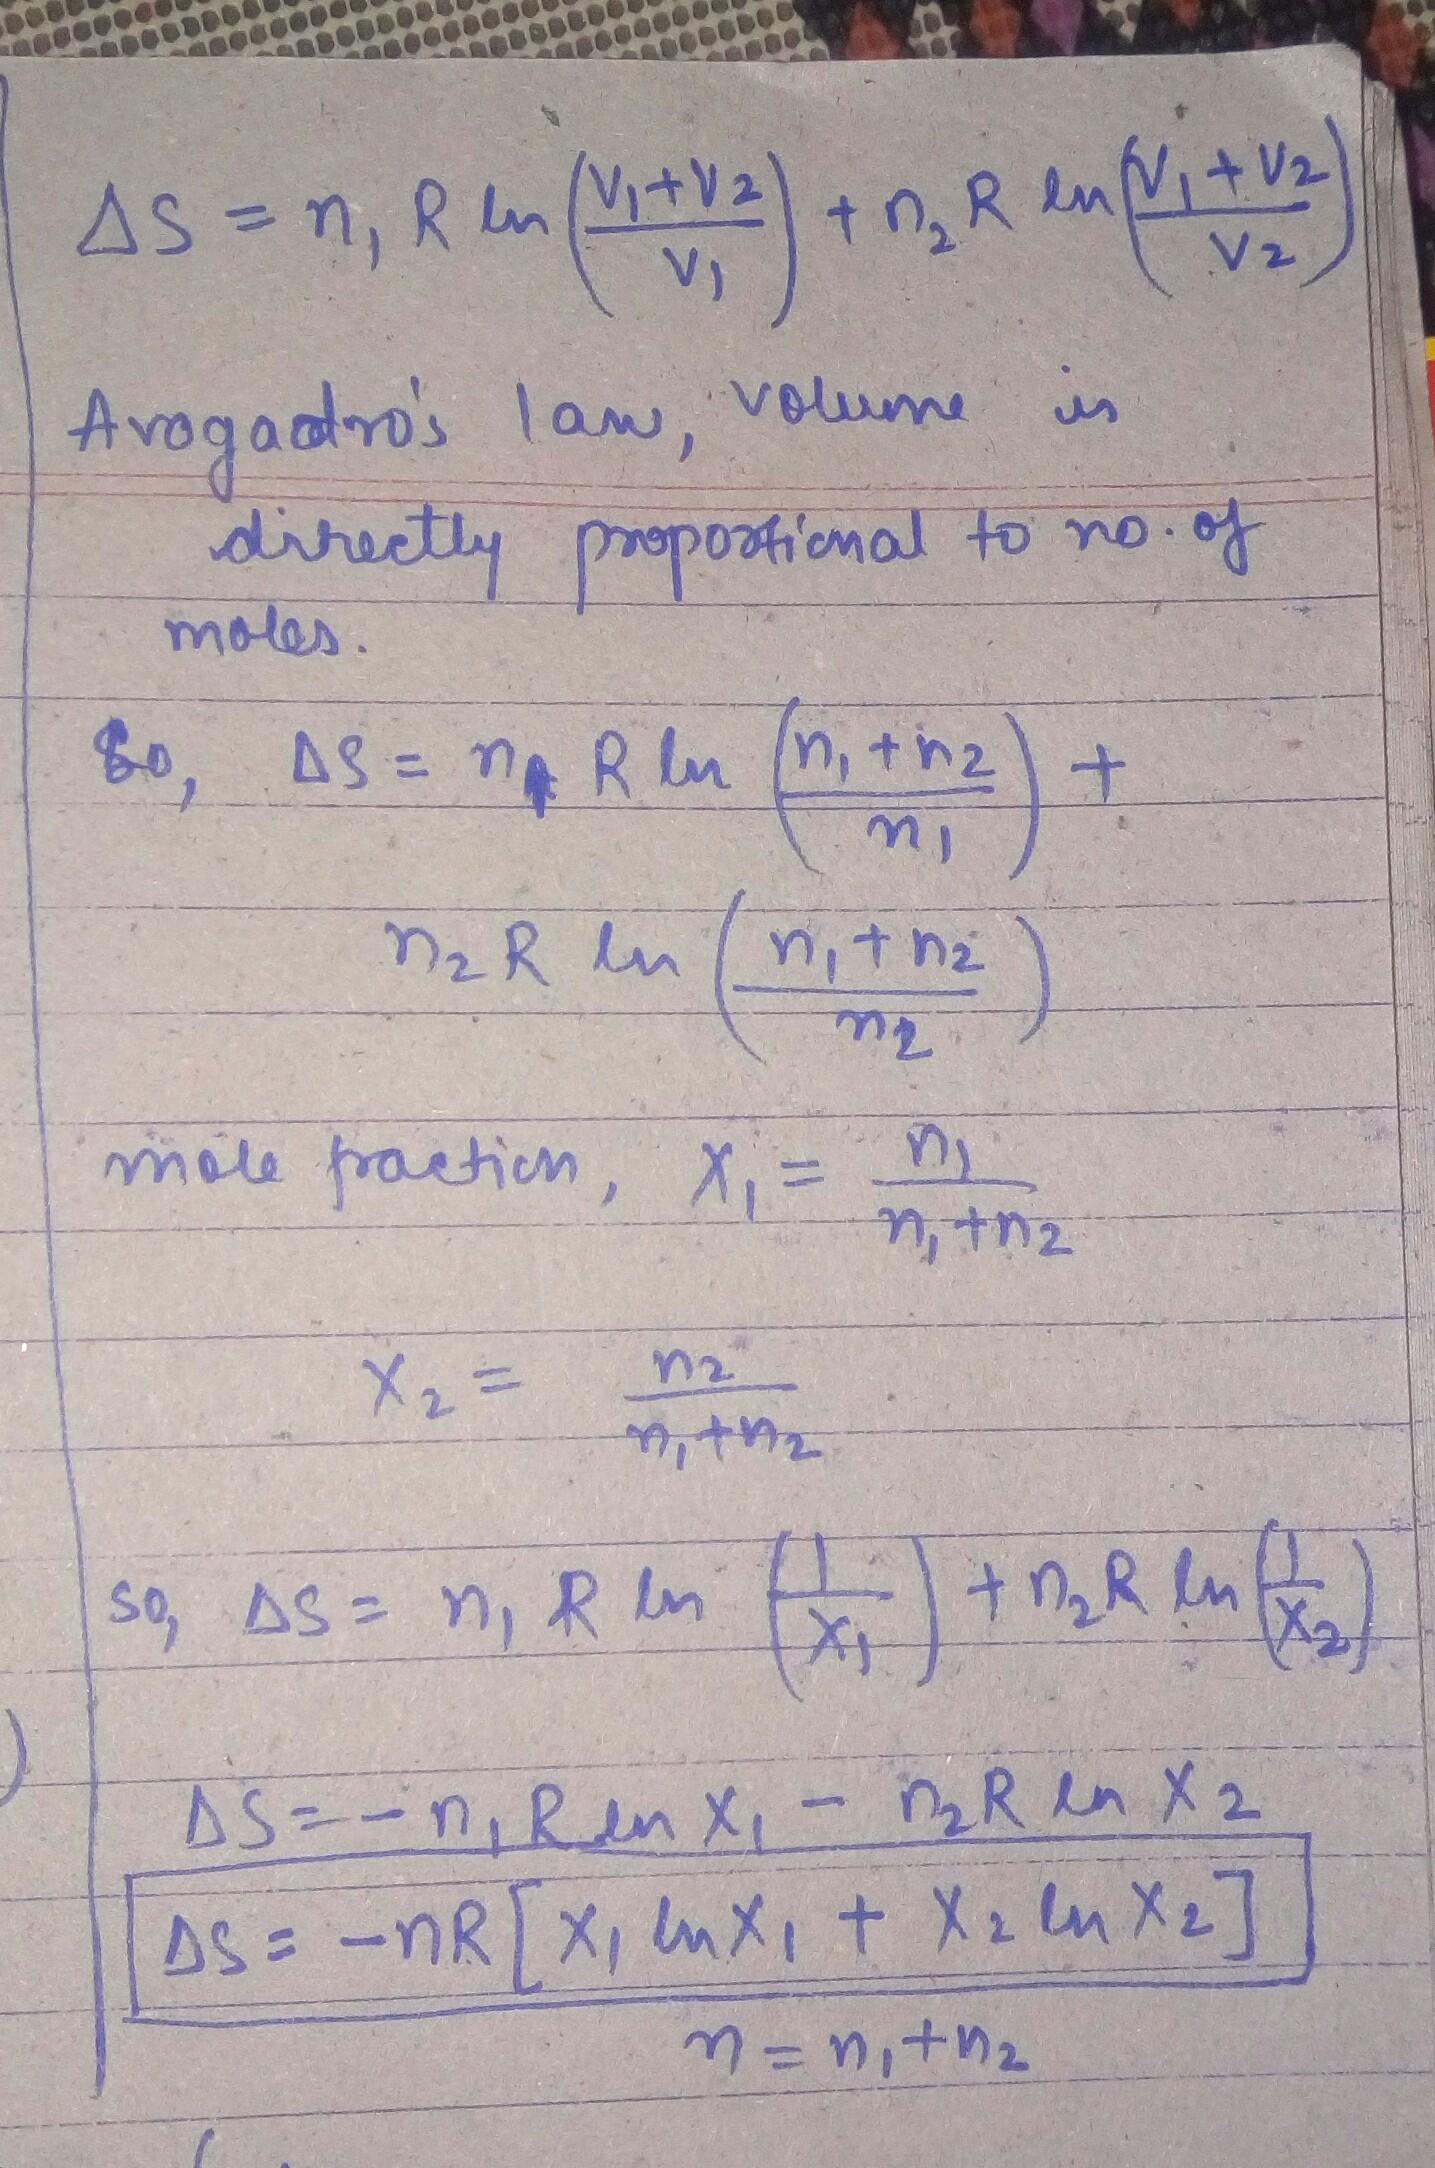 ΔS = n₁ R ln ((V₁+V₂)/V₁) + n₂ R ln ((V₁+V₂)/V₂)
Avogadro's law, volume is
directly proportional to no. of
moles.
So, ΔS = n₁ R ln ((n₁+n₂)/n₁) +
n₂ R ln ((n₁+n₂)/n₂)
mole fraction, X₁ = n₁/(n₁+n₂)
X₂ = n₂/(n₁+n₂)
so, ΔS = n₁ R ln (1/X₁) + n₂ R ln (1/X₂)
ΔS = -n₁ R ln X₁ - n₂ R ln X₂
ΔS = -nR [X₁ ln X₁ + X₂ ln X₂]
n = n₁+n₂